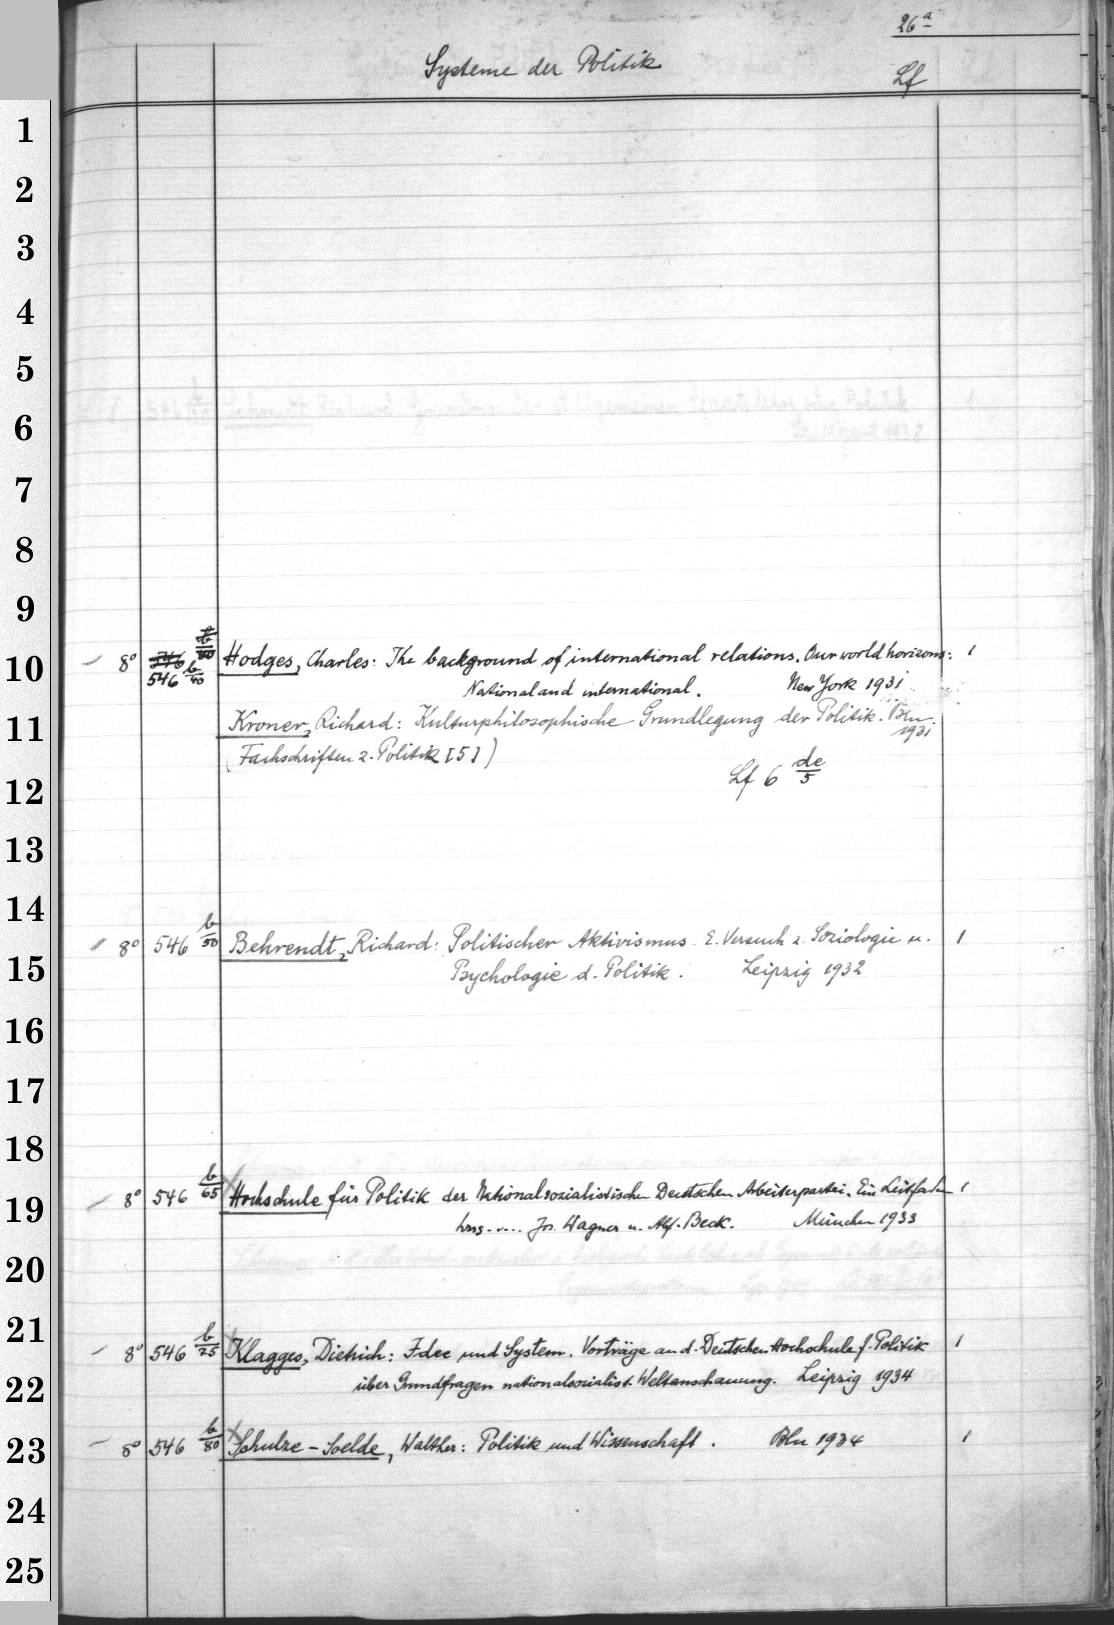 26a
Systeme der Politik
Lf
1
2
3
4
5
6
7
8
9
10
8° 546 b/40 Hodges, Charles: The background of international relations. Our world horizons: 1
National and international. New York 1931
11
Kroner, Richard: Kulturphilosophische Grundlegung der Politik. Bln.
1931
(Fachschriften z. Politik [5])
Lf 6 de/5
12
13
14
8° 546 b/50 Behrendt, Richard: Politischer Aktivismus. E. Versuch z. Soziologie u. 1
15
Psychologie d. Politik. Leipzig 1932
16
17
18
8° 546 b/65 Hochschule für Politik der Nationalsozialistischen Deutschen Arbeiterpartei. Ein Leitfaden 1
19
hrsg. .... Jos. Wagner u. Alf. Beck. München 1933
20
21
8° 546 b/75 Klagges, Dietrich: Idee und System. Vorträge an d. Deutschen Hochschule f. Politik 1
22
über Grundfragen nationalsozialist. Weltanschauung. Leipzig 1934
23
8° 546 b/80 Schulze-Soelde, Walther: Politik und Wissenschaft. Bln 1934 1
24
25